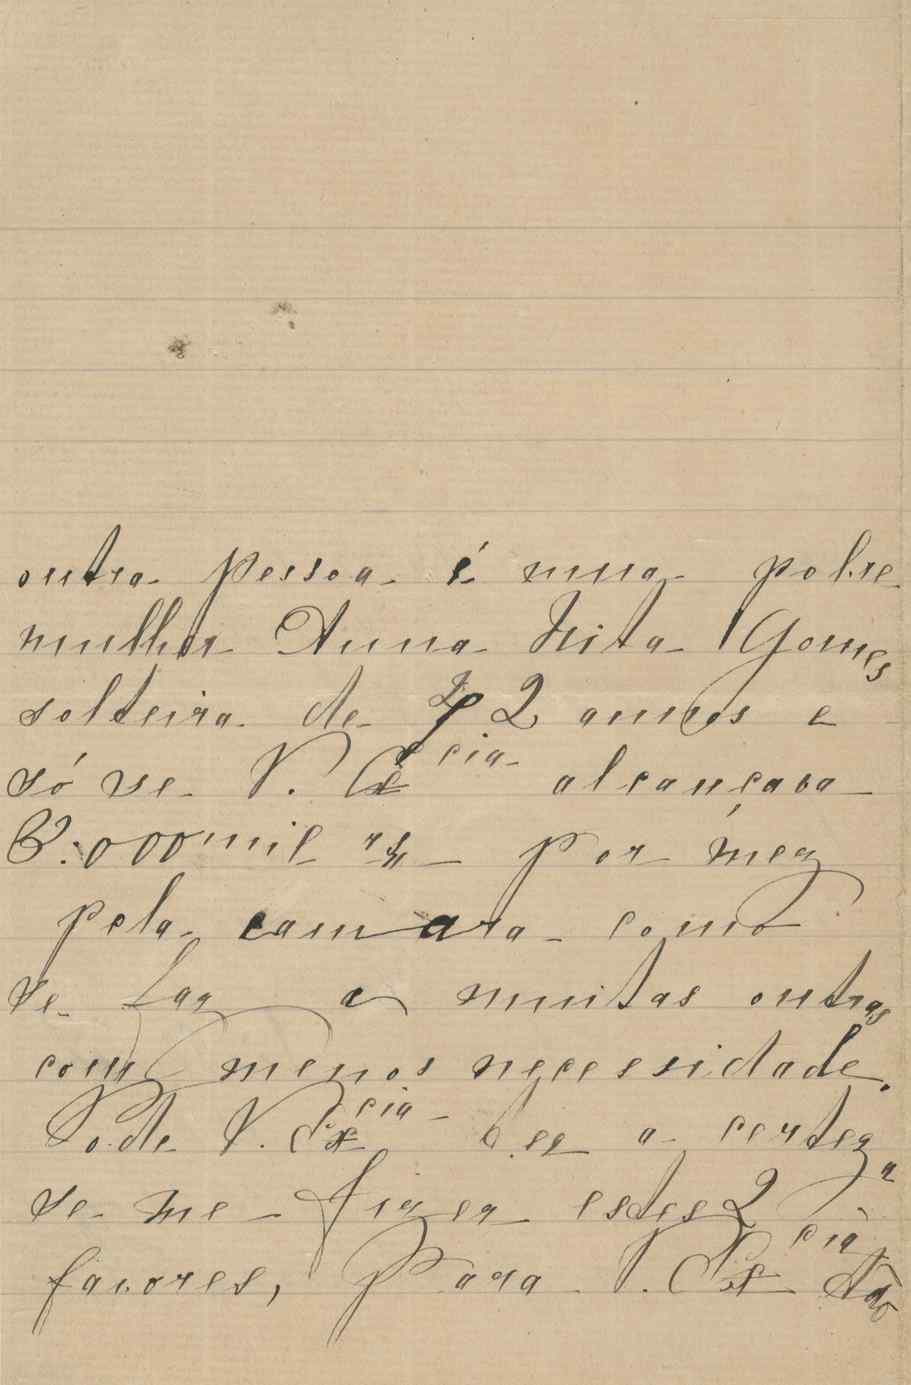 outra pessoa é uma pobre
mulher Anna Rita Gomes
solteira de 72 annos e
só se V. Ex.cia alcançava
3:000 mil rs por mez
pela camara como
se faz a muitas outras
com menos necessidade.
Pode V. Ex.cia ter a certeza
se me fizer estes 2
favores, Para V. Ex.cia são